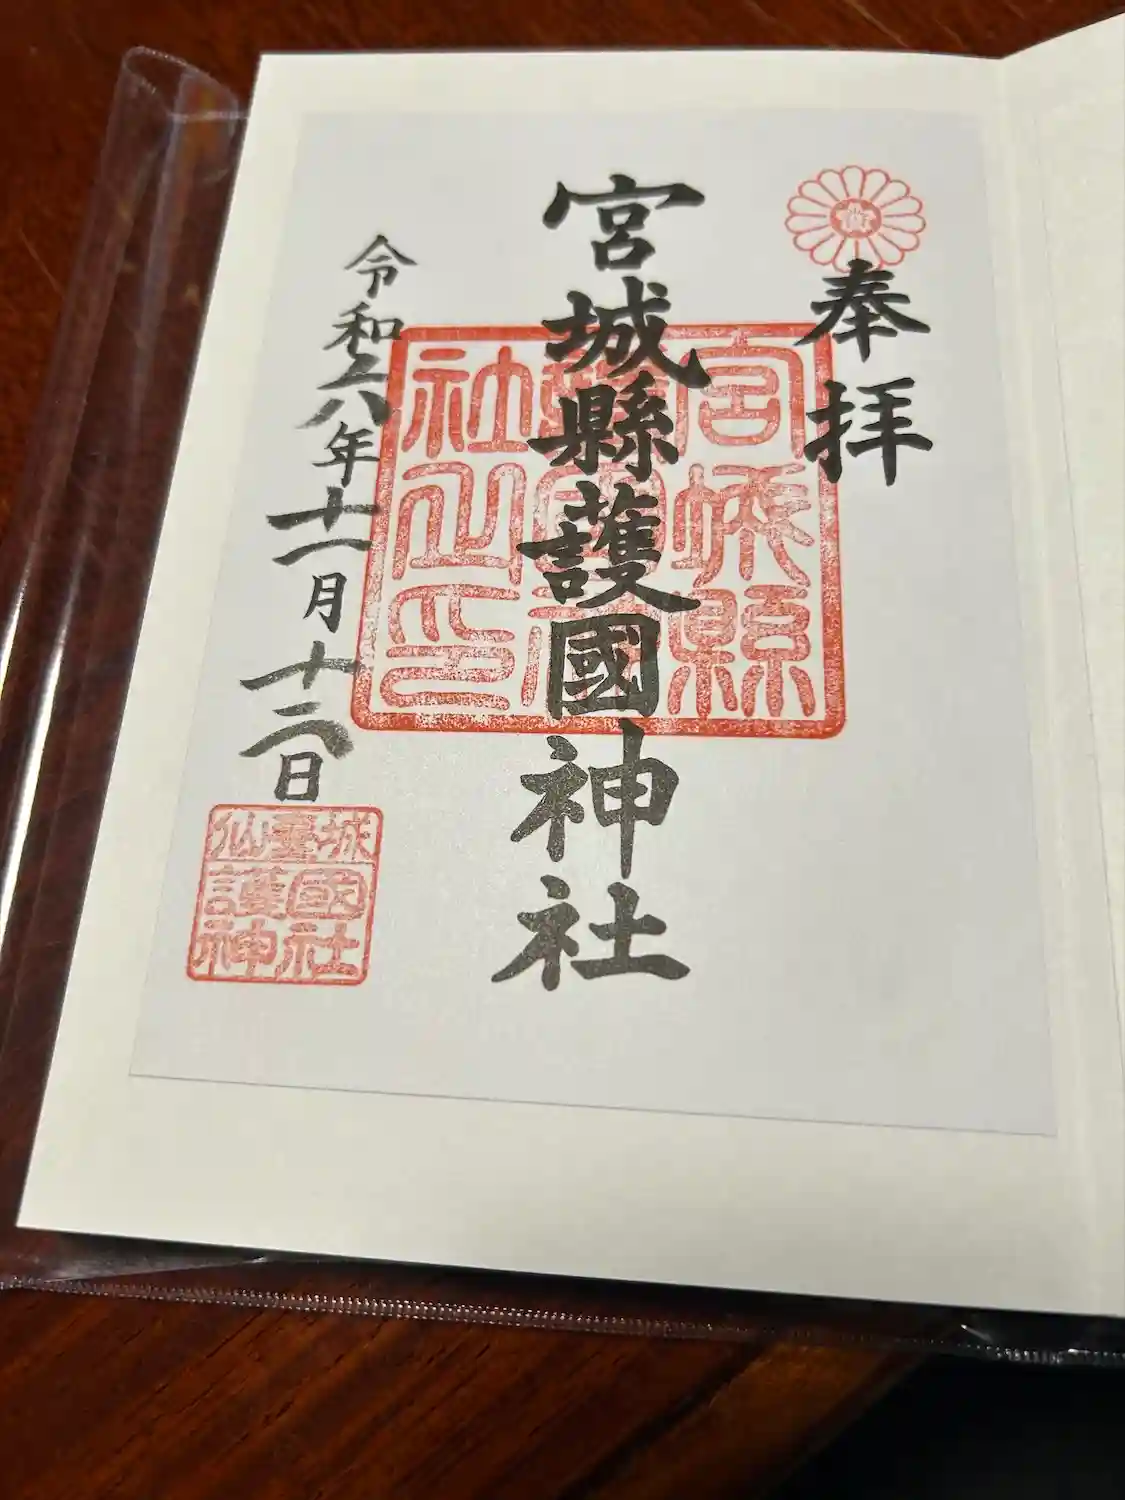 奉拝
宮城縣護國神社
宮城縣
護國神
社之印
令和六年十一月十二日
仙臺城
護國
神社